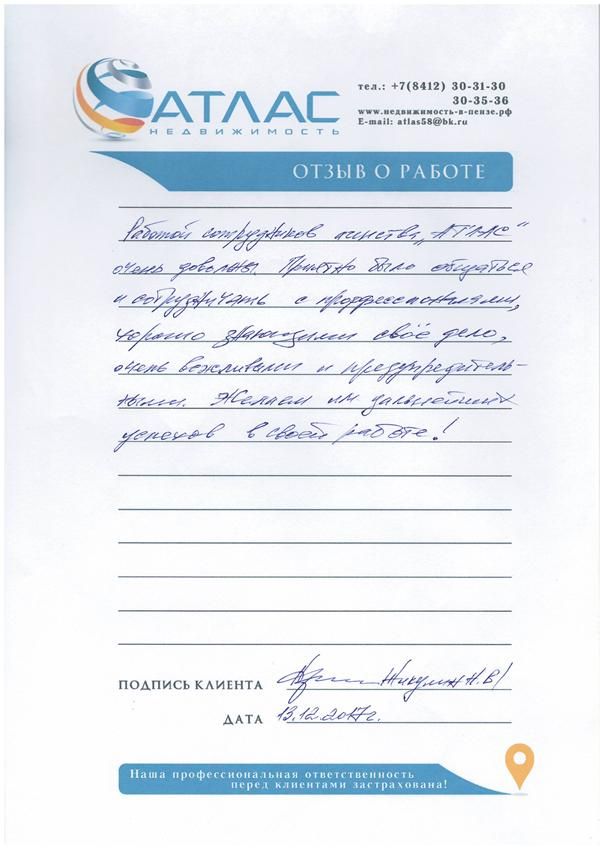 АТЛАС
НЕДВИЖИМОСТЬ
тел.: +7(8412) 30-31-30
30-35-36
www.недвижимость-в-пензе.рф
E-mail: atlas58@bk.ru
ОТЗЫВ О РАБОТЕ
Работой сотрудников агентства „АТЛАС“
очень довольны. Приятно было общаться
и сотрудничать с профессионалами,
хорошо знающими своё дело,
очень вежливыми и предупредитель-
ными. Желаем им дальнейших
успехов в своей работе!
ПОДПИСЬ КЛИЕНТА
ДАТА 13.12.2017г.
Наша профессиональная ответственность
перед клиентами застрахована!